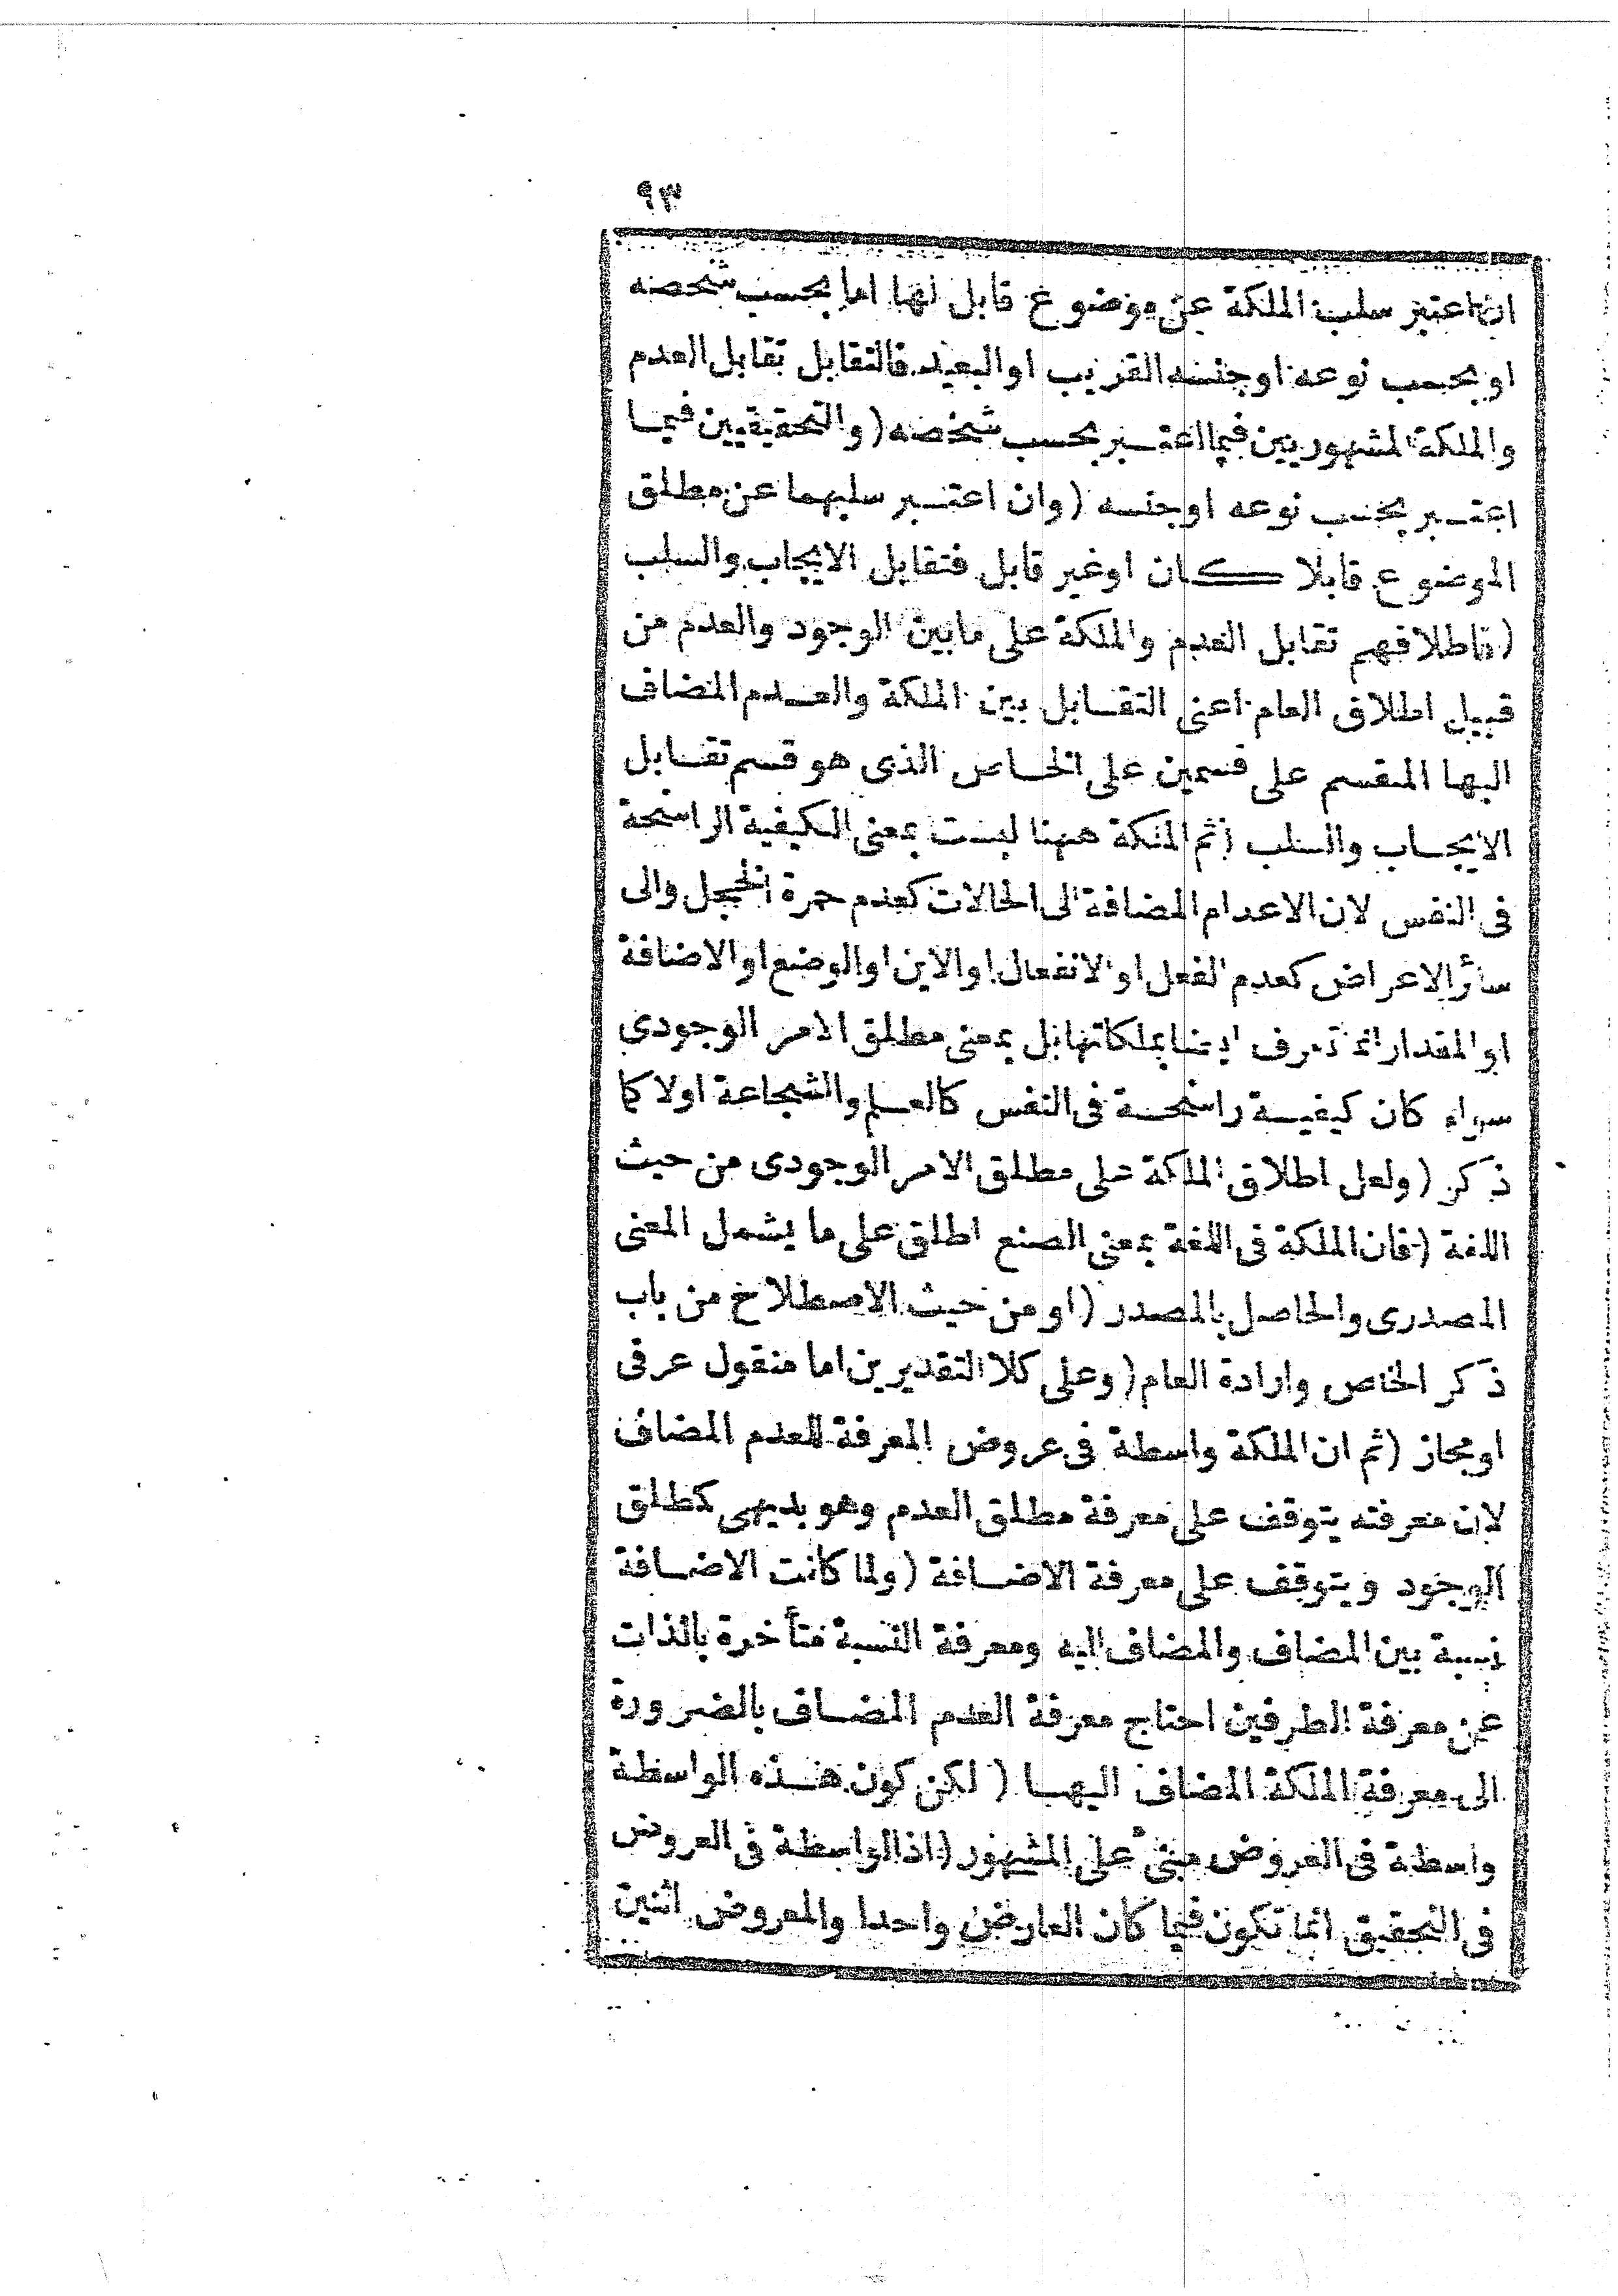 ٩٣
ان اعتبر سلب الملكة عن موضوع قابل لها اما بحسب شخصه
او بحسب نوعه او جنسه القريب او البعيد فالتقابل تقابل العدم
والملكة المشهوريين فيما اعتبر بحسب شخصه (والتحقيقيين فيما
اعتبر بحسب نوعه او جنسه (وان اعتبر سلبهما عن مطلق
الموضوع قابلا كان اوغير قابل فتقابل الايجاب والسلب
(فاطلاقهم تقابل العدم والملكة على مابين الوجود والعدم من
قبيل اطلاق العام اعنى التقابل بين الملكة والعدم المضاف
اليها المنقسم على قسمين على الخاص الذى هو قسم تقابل
الايجاب والسلب (ثم الملكة ههنا ليست بمعنى الكيفية الراسخة
فى النفس لان الاعدام المضافة الى الحالات كعدم حمرة الخجل والى
سائر الاعراض كعدم الفعل او الانفعال او الاين او الوضع او الاضافة
او المقدار انما تعرف ايضا بملكاتها بل بمعنى مطلق الامر الوجودى
سواء كان كيفية راسخة فى النفس كالعلم والشجاعة اولا كما
ذكر (ولعل اطلاق الملكة على مطلق الامر الوجودى من حيث
اللغة (فان الملكة فى اللغة بمعنى الصنع اطلق على ما يشمل المعنى
المصدرى والحاصل بالمصدر (او من حيث الاصطلاح من باب
ذكر الخاص وارادة العام (وعلى كلا التقديرين اما منقول عرفى
او مجاز (ثم ان الملكة واسطة فى عروض المعرفة للعدم المضاف
لان معرفته يتوقف على معرفة مطلق العدم وهو بديهى كمطلق
الوجود ويتوقف على معرفة الاضافة (ولما كانت الاضافة
نسبة بين المضاف والمضاف اليه ومعرفة النسبة متأخرة بالذات
عن معرفة الطرفين احتاج معرفة العدم المضاف بالضرورة
الى معرفة الملكة المضاف اليها (لكن كون هذه الواسطة
واسطة فى العروض مبنى على المشهور (اذ الواسطة فى العروض
فى التحقيق انما تكون فيما كان العارض واحدا والمعروض اثنين